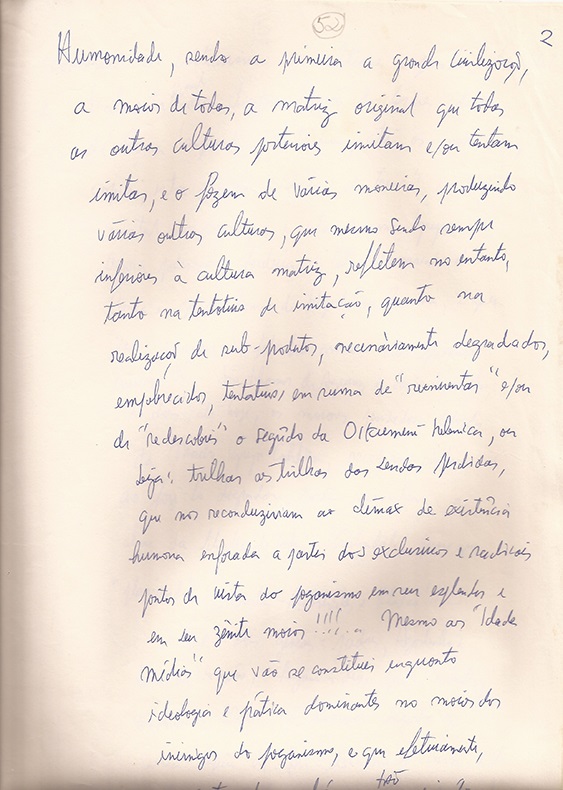 52
2
Humanidade, sendo a primeira a grande civilização,
a maior de todas, a matriz original que todas
as outras culturas posteriores imitam e/ou tentam
imitar, e o fazem de várias maneiras, produzindo
várias outras culturas, que mesmo sendo sempre
inferiores à cultura matriz, refletem no entanto,
tanto na tentativa de imitação, quanto na
realização de sub-produtos, necessáriamente degradados,
empobrecidos, tentativas em suma de "reinventar" e/ou
de "redescobrir" o segrêdo da Oikumenê helênica, ou
seja: trilhar as trilhas das sendas perdidas,
que nos reconduziriam ao clímax de existência
humana enfocada a partir dos exclusivos e radicais
pontos de vista do paganismo em seu esplendor e
em seu zênite maior!!!!... Mesmo as "Idade
Média" que vão se constituir enquanto
ideologia e prática dominantes no maior dos
inimigos do paganismo, e que efetivamente,
tão